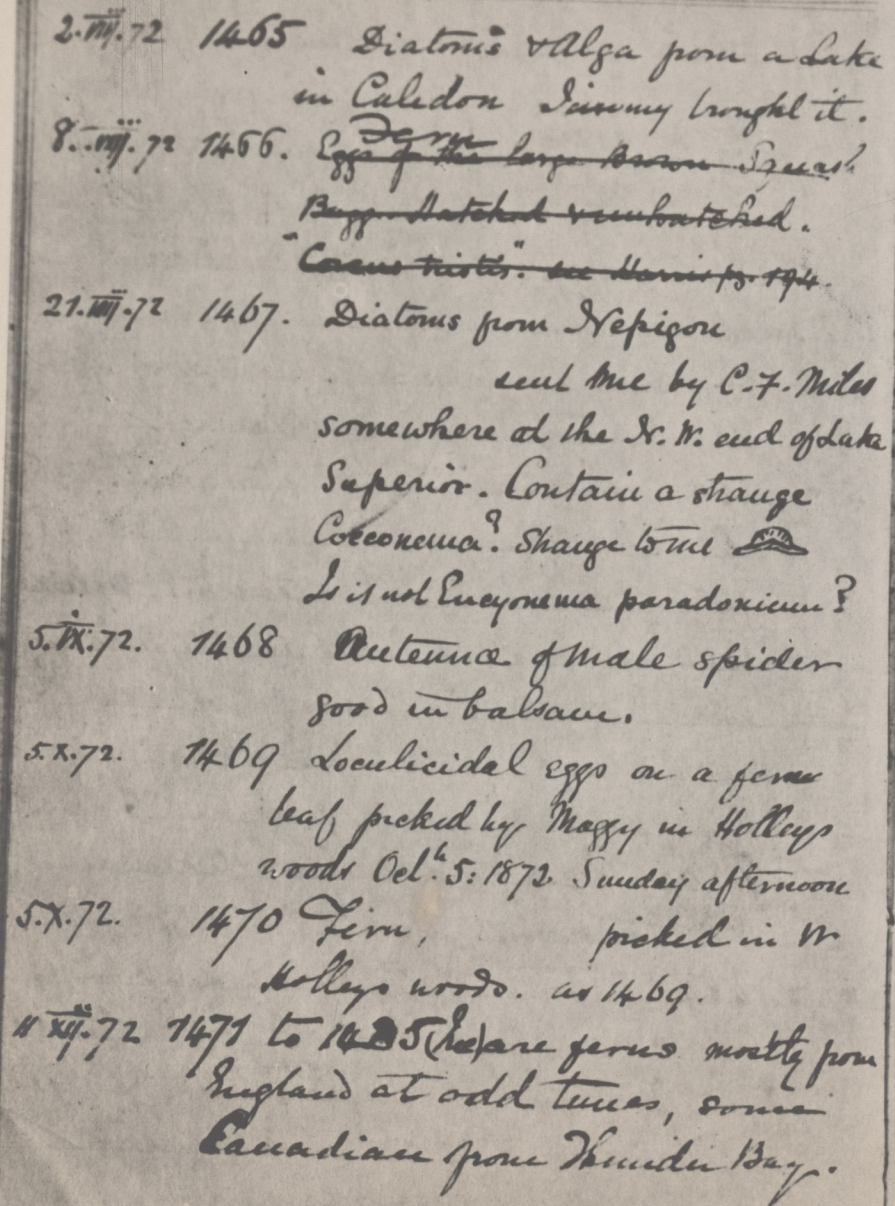 2.VIII.72 1465 Diatoms & Alga from a Lake
in Caledon Jimmy brought it.
8.VIII.72 1466. Fern
Eggs of the large Brown Squash
Bugg. Hatched & unhatched.
"Coreus tristis". see Harris p. 194.
21.VIII.72 1467. Diatoms from Nepigon
sent me by C. F. Miles
somewhere at the N. W. end of Lake
Superior. Contain a strange
Cocconema? Strange to me
Is it not Encyonema paradoxicum?
5.IX.72. 1468 Antennæ of male spider
good in balsam.
5.X.72. 1469 Loculicidal eggs on a fern
leaf picked by Maggy in Holleys
woods Octh. 5: 1872 Sunday afternoon
5.X.72. 1470 Fern, picked in W
Holleys woods. as 1469.
11 XII.72 1471 to are ferns mostly from
England at odd times, some
Canadian from Thunder Bay.